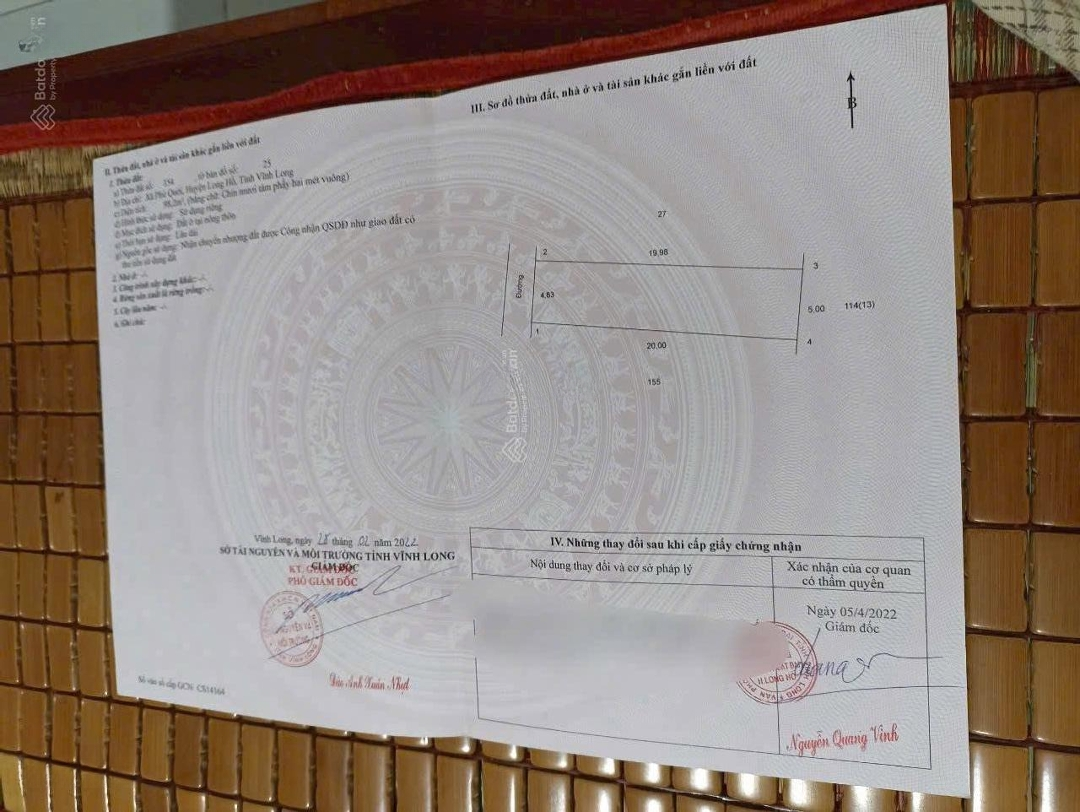 II. Thửa đất, nhà ở và tài sản khác gắn liền với đất
1. Thửa đất:
a) Thửa đất số: 154 tờ bản đồ số: 25
b) Địa chỉ: Xã Phú Quới, Huyện Long Hồ, Tỉnh Vĩnh Long
c) Diện tích: 98,2m², (bằng chữ: Chín mươi tám phẩy hai mét vuông)
d) Hình thức sử dụng: Sử dụng riêng
đ) Mục đích sử dụng: Đất ở tại nông thôn
e) Thời hạn sử dụng: Lâu dài
g) Nguồn gốc sử dụng: Nhận chuyển nhượng đất được Công nhận QSDĐ như giao đất có
thu tiền sử dụng đất
2. Nhà ở: -/-
3. Công trình xây dựng khác: -/-
4. Rừng sản xuất là rừng trồng: -/-
5. Cây lâu năm: -/-
6. Ghi chú:
Vĩnh Long, ngày 28 tháng 02 năm 2022
SỞ TÀI NGUYÊN VÀ MÔI TRƯỜNG TỈNH VĨNH LONG
KT. GIÁM ĐỐC
GIÁM ĐỐC
PHÓ GIÁM ĐỐC
Số vào sổ cấp GCN: CS14164
III. Sơ đồ thửa đất, nhà ở và tài sản khác gắn liền với đất
B
27
2
19,98
3
Đường
4,83
5,00
114(13)
1
4
20.00
155
IV. Những thay đổi sau khi cấp giấy chứng nhận
Nội dung thay đổi và cơ sở pháp lý
Xác nhận của cơ quan
có thẩm quyền
Ngày 05/4/2022
Giám đốc
Nguyễn Quang Vinh
Batdongsan
by Property
Batdongsan
by Property